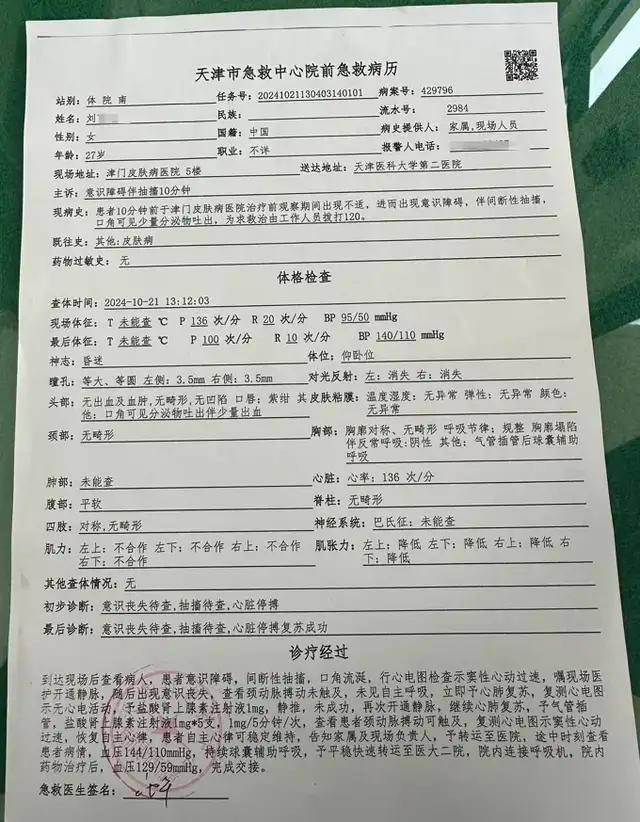 天津市急救中心院前急救病历
站别: 体 院 南 任务号: 20241021130403140101 病案号: 429796
姓名: 刘 民族: 流水号: 2984
性别: 女 国籍: 中国 病史提供人: 家属,现场人员
年龄: 27岁 职业: 不详 报警人电话:
现场地址: 津门皮肤病医院 5楼 送达地址: 天津医科大学第二医院
主诉: 意识障碍伴抽搐10分钟
现病史: 患者10分钟前于津门皮肤病医院治疗前观察期间出现不适, 进而出现意识障碍, 伴间断性抽搐,
口角可见少量分泌物吐出, 为求救治由工作人员拨打120。
既往史: 其他:皮肤病
药物过敏史: 无
体格检查
查体时间: 2024-10-21 13:12:03
现场体征: T 未能查 ℃ P 136 次/分 R 20 次/分 BP 95/50 mmHg
最后体征: T 未能查 ℃ P 100 次/分 R 10 次/分 BP 140/110 mmHg
神志: 昏迷 体位: 仰卧位
瞳孔: 等大、等圆 左侧: 3.5mm 右侧: 3.5mm 对光反射: 左: 消失 右: 消失
头部: 无出血及血肿,无畸形,无凹陷 口唇: 紫绀 其他: 口角可见分泌物吐出伴少量出血 皮肤粘膜: 温度湿度: 无异常 弹性: 无异常 颜色: 无异常
颈部: 无畸形 胸部: 胸廓对称、无畸形 呼吸节律: 规整 胸廓塌陷
伴反常呼吸:阴性 其他: 气管插管后球囊辅助
呼吸
肺部: 未能查 心脏: 心率: 136 次/分
腹部: 平软 脊柱: 无畸形
四肢: 对称,无畸形 神经系统: 巴氏征: 未能查
肌力: 左上: 不合作 左下: 不合作 右上: 不合作 右下: 不合作 肌张力: 左上: 降低 左下: 降低 右上: 降低 右下: 降低
其他查体情况: 无
初步诊断: 意识丧失待查,抽搐待查,心脏停搏
最后诊断: 意识丧失待查,抽搐待查,心脏停搏复苏成功
诊疗经过
到达现场后查看病人, 患者意识障碍, 间断抽搐, 口角流涎, 行心电图检查示窦性心动过速, 嘱现场医
护开通静脉, 随后出现意识丧失, 查看颈动脉搏动未触及, 未见自主呼吸, 立即予心肺复苏, 复测心电图
示无心电活动, 予盐酸肾上腺素注射液1mg, 静推, 未成功, 再次开通静脉, 继续心肺复苏, 予气管插
管, 盐酸肾上腺素注射液1mg*5支, 1mg/5分钟/次, 查看患者颈动脉搏动可触及, 复测心电图示窦性心动
过速, 恢复自主心律, 患者自主心律可稳定维持, 告知家属及现场负责人, 予转运至医院, 途中时刻查看
患者病情, 血压144/110mmHg, 持续球囊辅助呼吸, 予平稳快速转运至医大二院, 院内连接呼吸机, 院内
药物治疗后, 血压129/59mmHg, 完成交接。
急救医生签名: